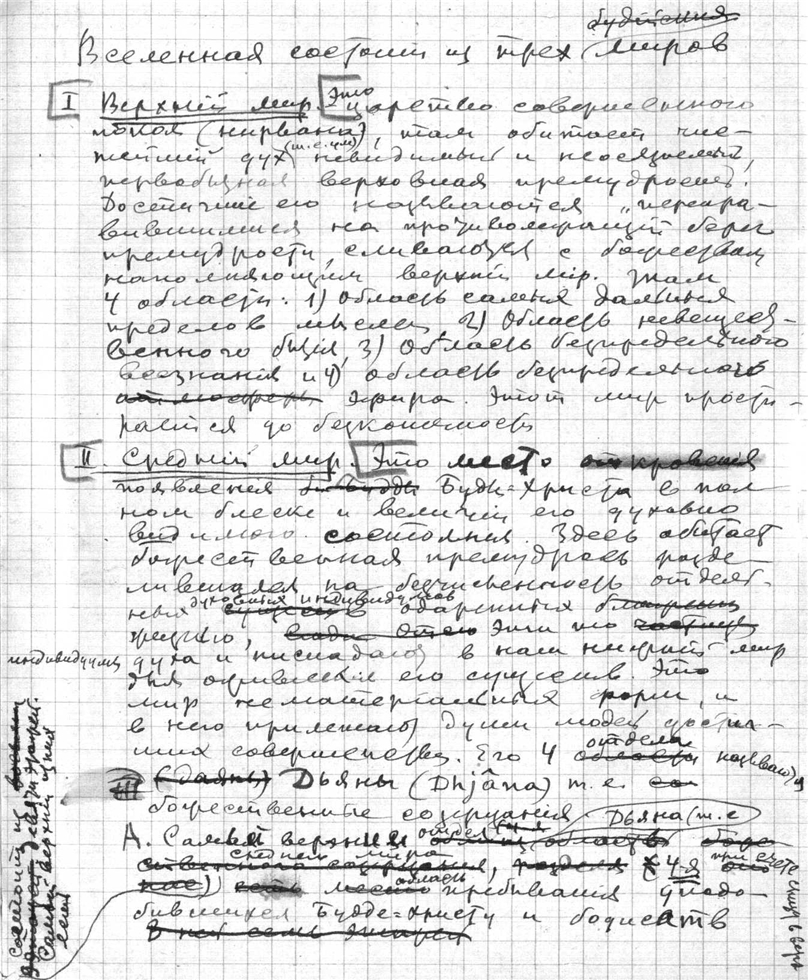 Вселенная состоит из трех миров
I Верхний мир. Это царство совершенного
покоя (нирвана), там обитает чис-
тейший дух (т. е. ум) невидимый и неосязаемый,
первобытная верховная премудрость.
Достигшие его называются „перепра-
вившимися на противолежащий берег
премудрости, сливаются с божеством
наполняющим верхний мир. Там
4 области: 1) Область самых дальних
пределов мысли 2) Область невещест-
венного бытия, 3) Область безпредельного
всезнания и 4) область безпредельного
атмосферы эфира. Этот мир прости-
рается до безконечности
II. Средний мир. Это место откровения
появления Будды Буды=Христа в пол-
ном блеске и величии его духовно
видимого состояния. Здесь обитает
божественная премудрость разде-
лившаяся на безчисленность отдель-
ных духовных индивидуумов одаренных
жизнью, Эти то
индивидуумы духа и ниспадают в наш низший мир
для оживления его существ. Это
мир нематериальных форм, и
в него прилетают души людей достиг-
ших совершенства. Его 4 отдела называются
(дааны) Дьяны (Dhjâna) т. е.
божественные созерцания. Дьяна (т. е
А. Самый верхний отдел
среднего мира, 4-я при счете снизу вверх
область пребывания уподо-
бившихся Будде=Христу и бодисатв
В ней семь
состоит из
Самый верхний из них